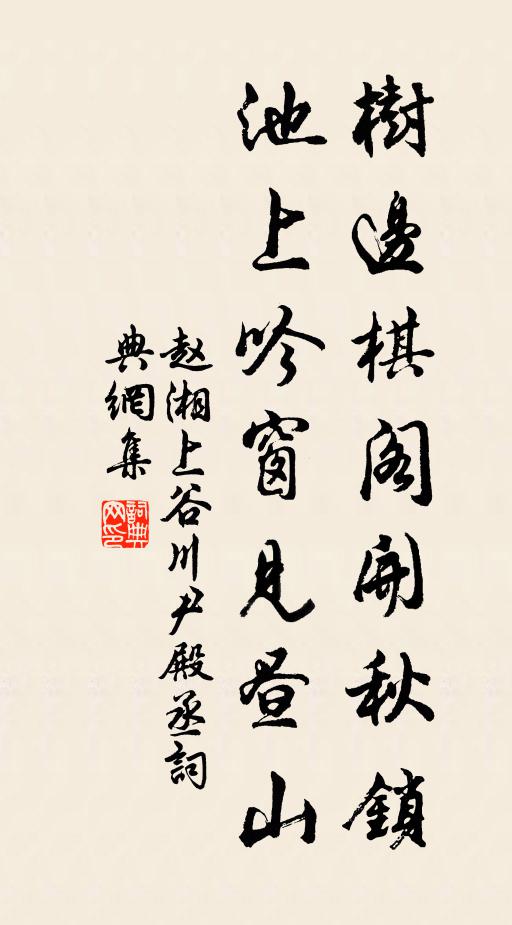 樹邊棋阁開秋鎖
池上吟窗見昼山
赵湘上谷川尹殿丞詞
典網集
詞典
网印